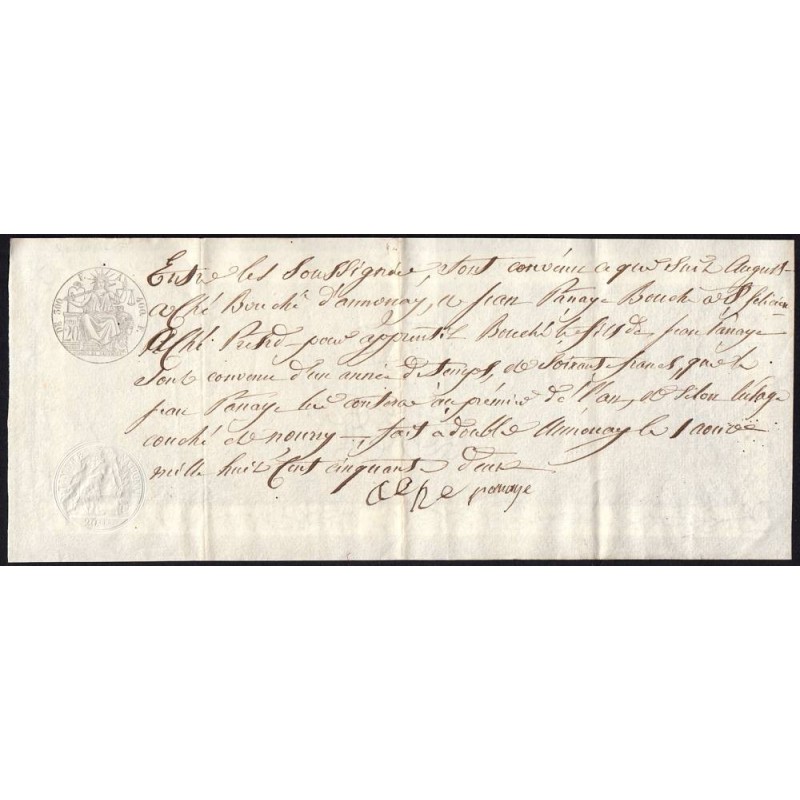 Entre les Soussignée, sont convenu ce que suit August
Aché Bouché d'annonay, et jean Panaye Bouché a St felicien
Aché Prend pour apprentit Bouché le fils de jean Panaye
Sont convenu d'un année de temps, de Soixante francs, que le
jean Panaye lui contera au prémié de l'an, et selon lusage
couché et nourry, fait a double Annonay le 1 aout
mille huit Cent cinquante deux
ache panaye
DE 300 F. A 400 F.
20